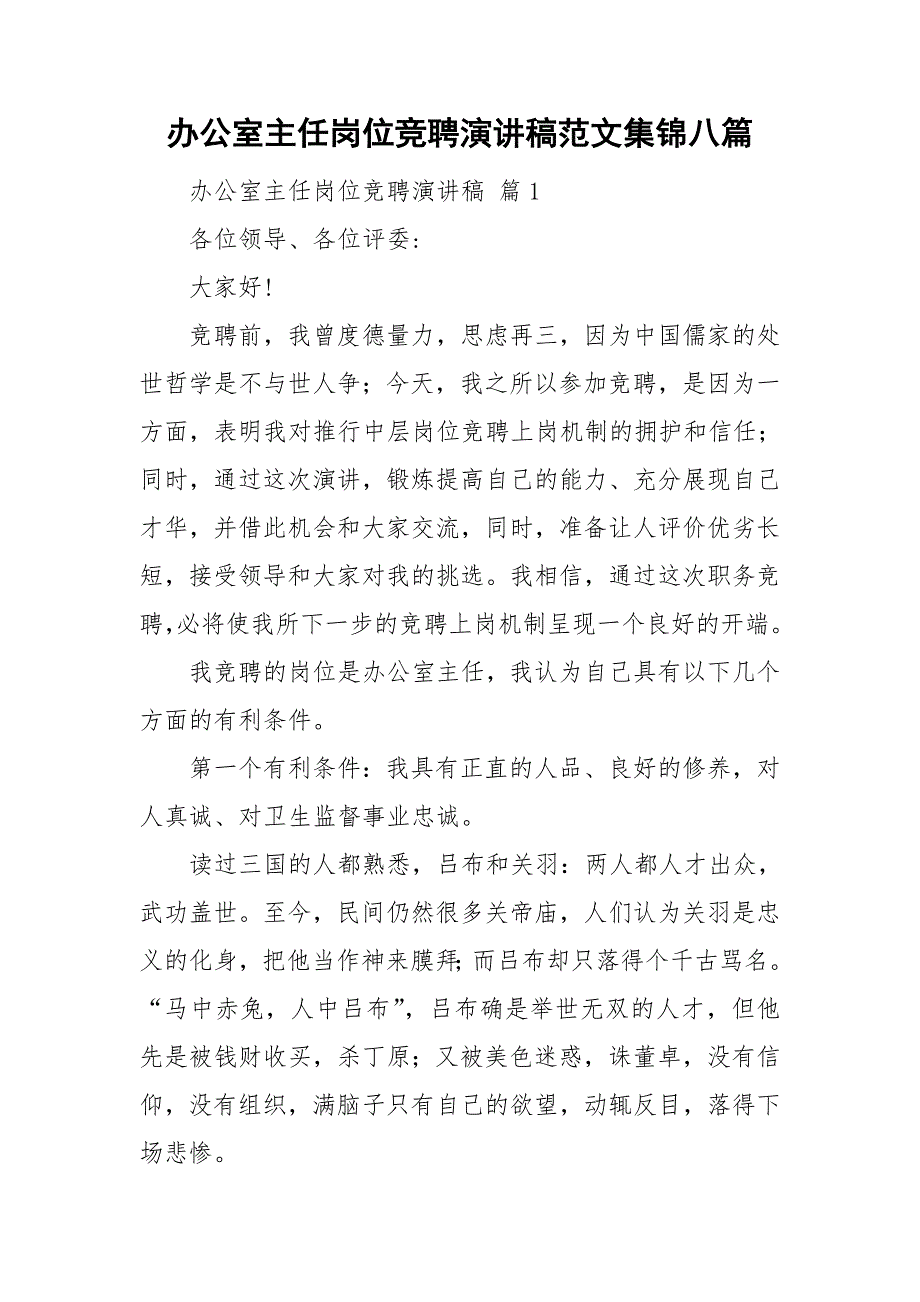 办公室主任岗位竞聘演讲稿范文集锦八篇
办公室主任岗位竞聘演讲稿 篇1
各位领导、各位评委:
大家好!
竞聘前，我曾度德量力，思虑再三，因为中国儒家的处
世哲学是不与世人争；今天，我之所以参加竞聘，是因为一
方面，表明我对推行中层岗位竞聘上岗机制的拥护和信任；
同时，通过这次演讲，锻炼提高自己的能力、充分展现自己
才华，并借此机会和大家交流，同时，准备让人评价优劣长
短，接受领导和大家对我的挑选。我相信，通过这次职务竞
聘，必将使我所下一步的竞聘上岗机制呈现一个良好的开端。
我竞聘的岗位是办公室主任，我认为自己具有以下几个
方面的有利条件。
第一个有利条件：我具有正直的人品、良好的修养，对
人真诚、对卫生监督事业忠诚。
读过三国的人都熟悉，吕布和关羽：两人都人才出众，
武功盖世。至今，民间仍然很多关帝庙，人们认为关羽是忠
义的化身，把他当作神来膜拜；而吕布却只落得个千古骂名。
“马中赤兔，人中吕布”，吕布确是举世无双的人才，但他
先是被钱财收买，杀丁原；又被美色迷惑，诛董卓，没有信
仰，没有组织，满脑子只有自己的欲望，动辄反目，落得下
场悲惨。